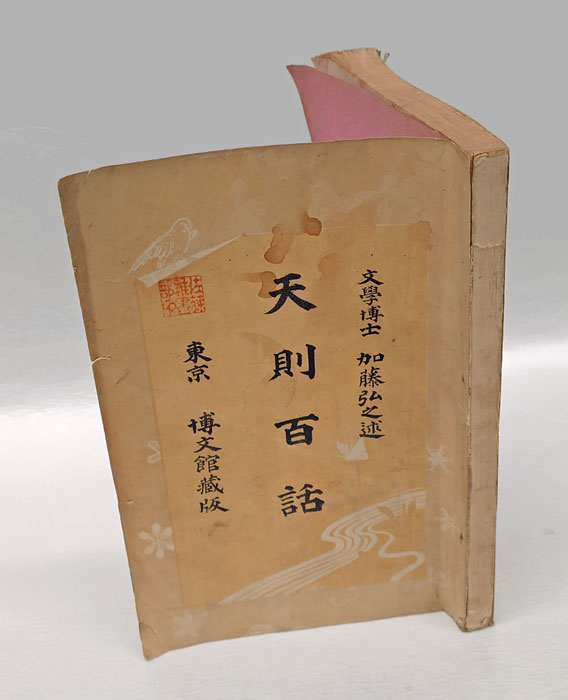 文學博士 加藤弘之述
天則百話
東京 博文館藏版